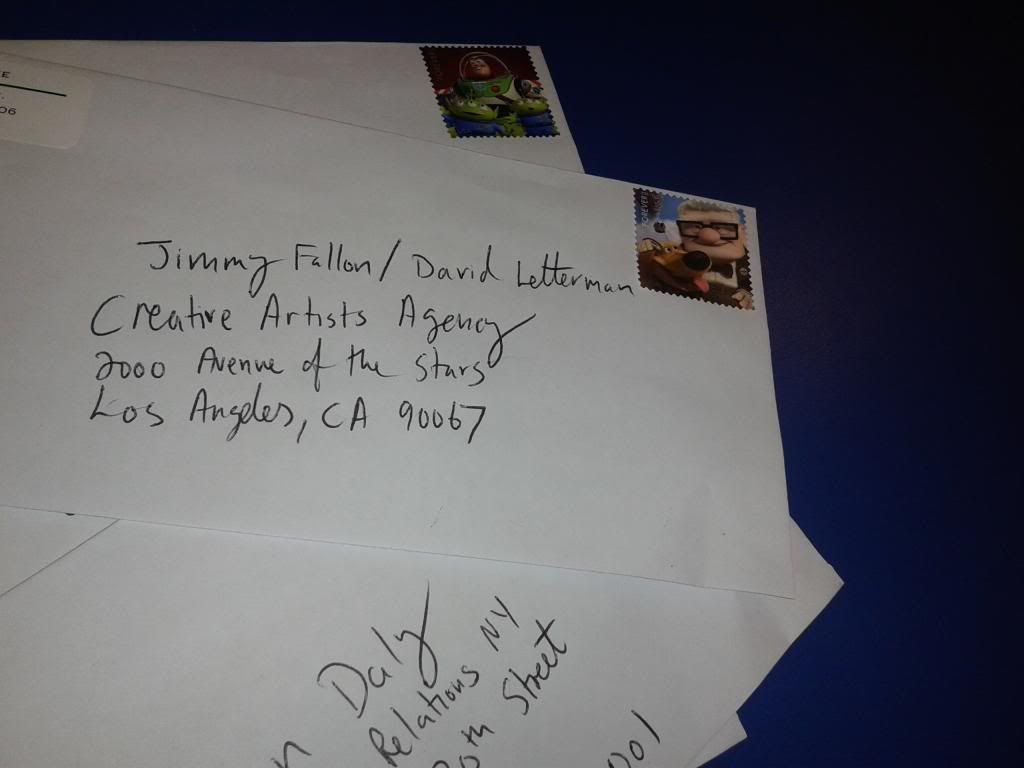 E
06
FOREVER
Jimmy Fallon/David Letterman
Creative Artists Agency
2000 Avenue of the Stars
Los Angeles, CA 90067
n Daly
Relations NY
0th Street
001